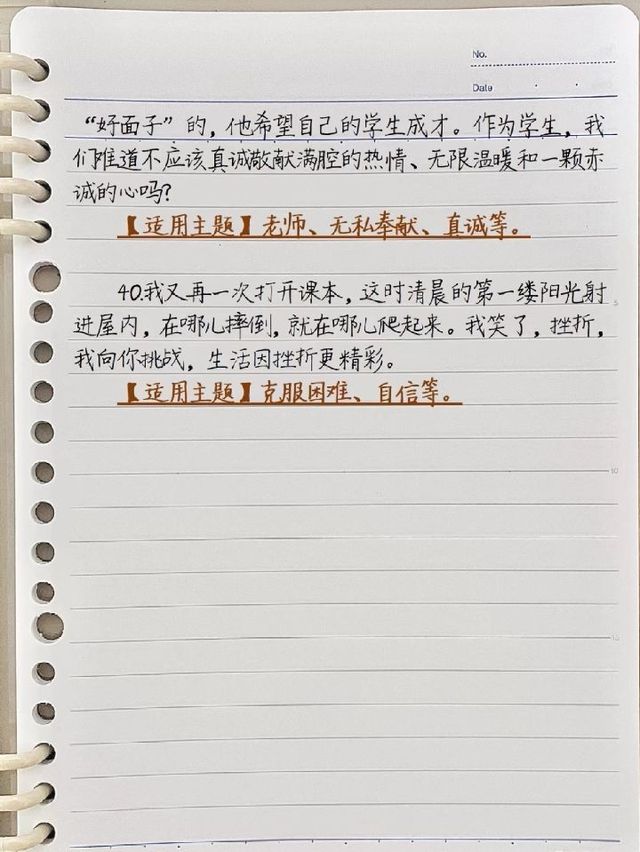 No.
Date
“好面子”的，他希望自己的学生成才。作为学生，我
们难道不应该真诚敬献满腔的热情、无限温暖和一颗赤
诚的心吗？
【适用主题】老师、无私奉献、真诚等。
40.我又再一次打开课本，这时清晨的第一缕阳光射
5
进屋内，在哪儿摔倒，就在哪儿爬起来。我笑了，挫折，
我向你挑战，生活因挫折更精彩。
【适用主题】克服困难、自信等。
10
15